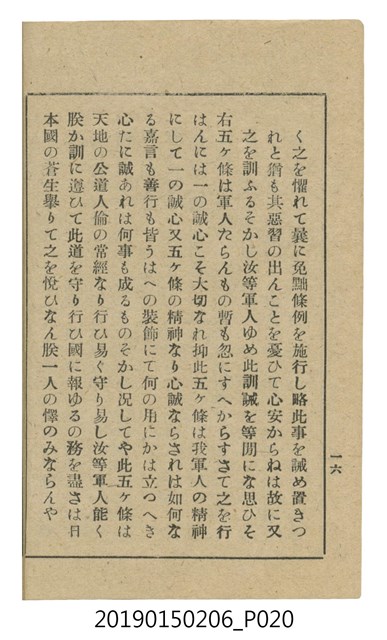 く之を懼れて曩に免黜條例を施行し略此事を誡め置きつ
れと猶も其惡習の出んことを憂ひて心安からねは故に又
之を訓ふるそかし汝等軍人ゆめ此訓誡を等閒にな思ひそ
右五ケ條は軍人たらんもの暫も忽にすへからすさて之を行
はんには一の誠心こそ大切なれ抑此五ケ條は我軍人の精神
にして一の誠心又五ケ條の精神なり心誠ならされは如何な
る嘉言も善行も皆うはへの裝飾にて何の用にかは立つへき
心たに誠あれは何事も成るものそかし况してや此五ケ條は
天地の公道人倫の常經なり行ひ易く守り易し汝等軍人能く
朕か訓に遵ひて此道を守り行ひ國に報ゆるの務を盡さは日
本國の蒼生擧りて之を悅ひなん朕一人の懌のみならんや
一六
20190150206_P020